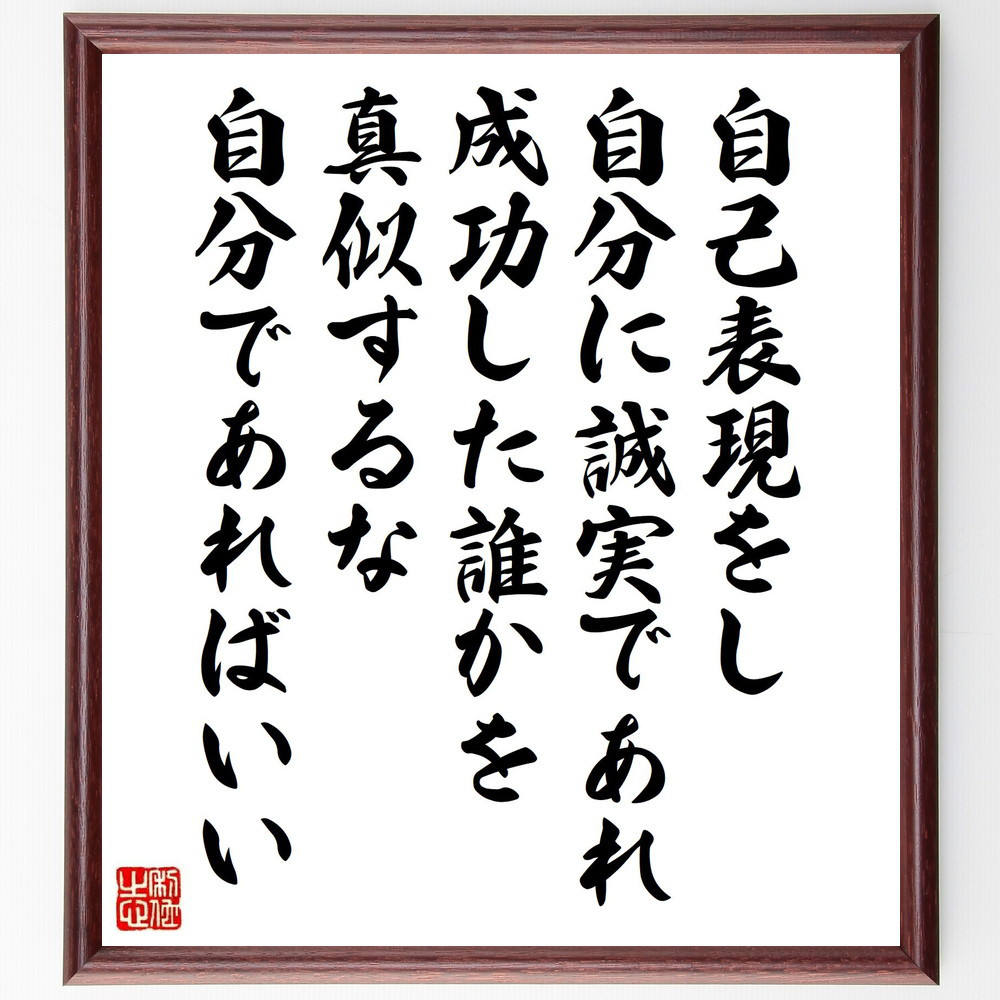 自己表現をし
自分に誠実であれ
成功した誰かを
真似するな
自分であればいい